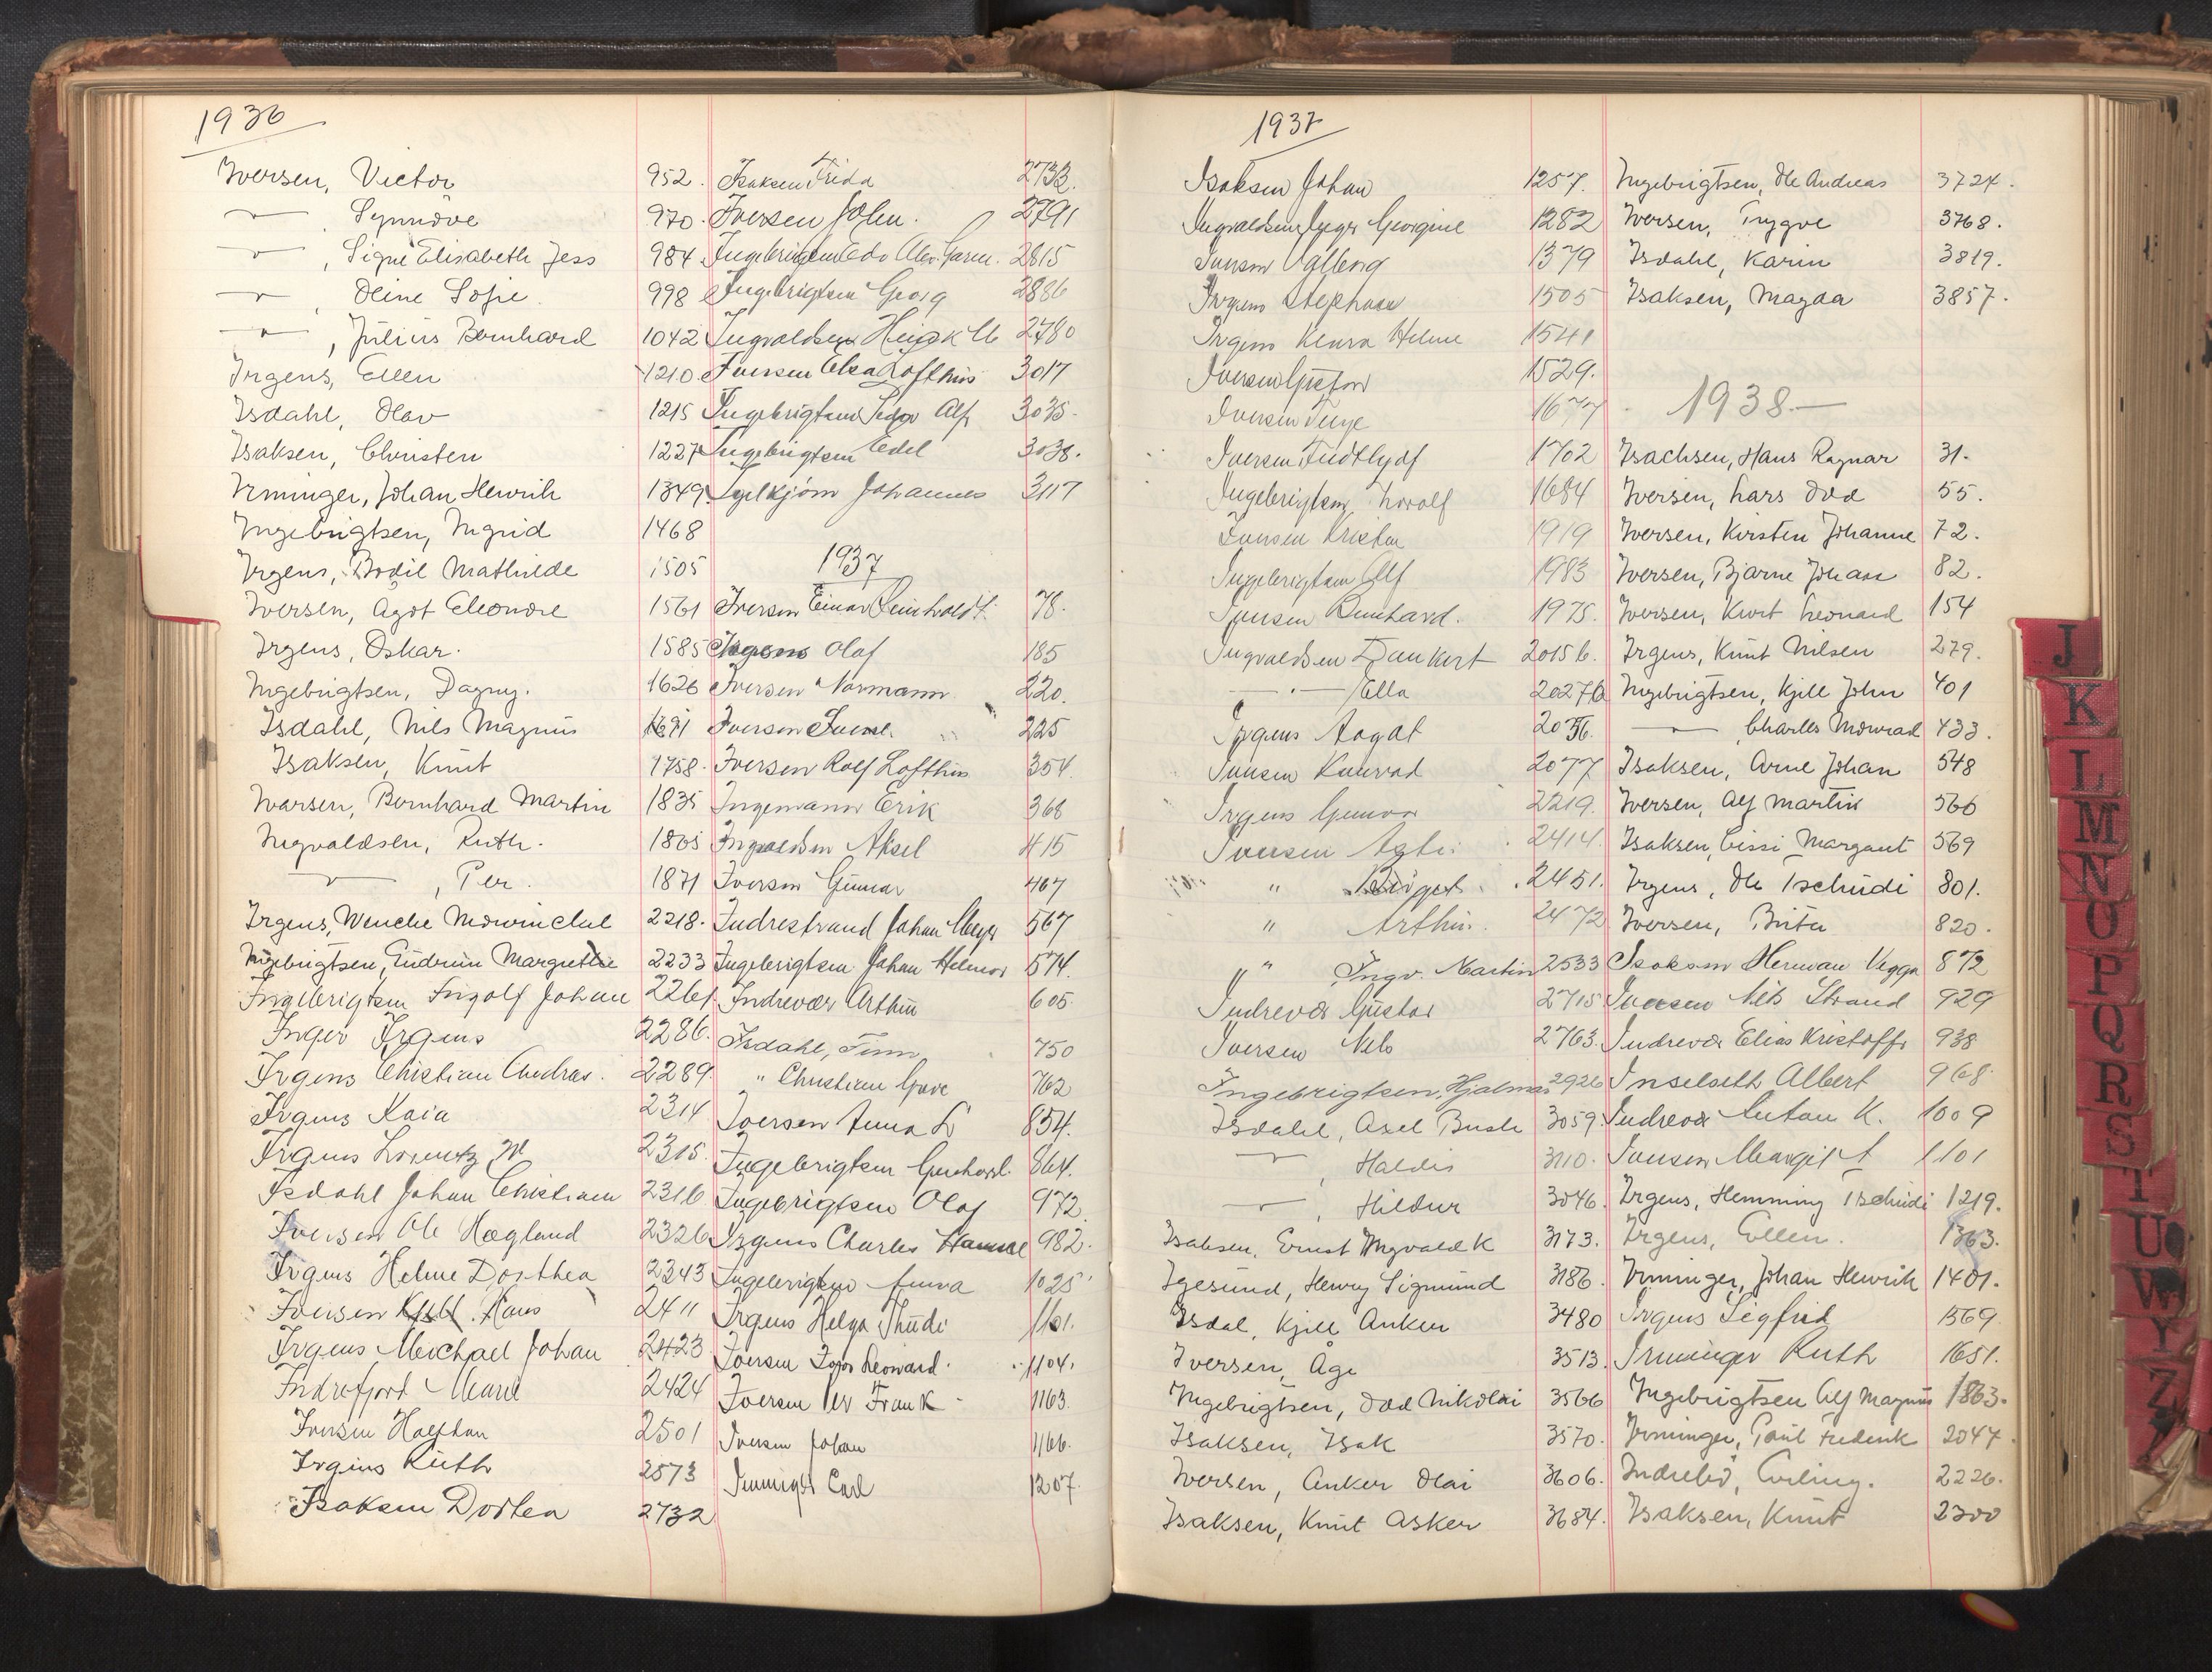 1936
Iversen, Victor 952.
—"— , Synnöve 970.
—"— , Signe Elisabeth Jess 984
—"— , Oline Sofie. 998
—"— , Julius Bernhard 1042
Irgens, Ellen 1210.
Isdahl, Olav 1215
Isaksen, Christen 1227
Irminger, Johan Henrik 1349
Ingebrigtsen, Ingrid 1468
Irgens, Bodil Mathilde 1505
Iversen, Ågot Eleonore 1561
Irgens, Oskar. 1585
Ingebrigtsen, Dagny. 1626
Isdahl, Nils Magnus 1691
Isaksen, Knut 1758.
Ivarsen, Bernhard Martin 1835
Ingvaldsen, Ruth. 1865
—"— , Per. 1871
Irgens, Wenche 2218.
Ingebrigtsen, Gudrun Margrethe 2233
Ingebrigtsen Ingolf Johan 2261
Inger Irgens 2286.
Irgens Christian Andreas. 2289
Irgens Kaia 2314
Irgens Lorentz M 2315.
Isdahl Johan Christian 2316
Iversen Ole Hogland 2326
Irgens Helene Dorthea 2343
Iversen Hans 2411
Irgens Michael Johan 2423
Indrefjord Marie 2424
Iversen Halfdan 2501
Irgens Ruth 2573
Isaksen Dortea 2732
Isaksen Frida 2733.
Iversen John. 2791
Ingebrigtsen Edv 2815
Ingebrigtsen Georg 2886
Ingvaldsen 2780
Iversen Elsa Lofthus 3017
Ingebrigtsen Alf 3035.
Ingebrigtsen Edel 3038.
Igelkjøn Johannes 3117
1937
Iversen Einar Reinholdt. 78.
Irgens Olaf 185
Iversen Normann 220.
Iversen Iver 225
Iversen Rolf Lofthus 354.
Ingemann Erik 368
Ingvaldsen Aksel 415
Iversen Gunnar 467
Indrestrand Johan Meyer 567
Ingebrigtsen Johan Helmer 574.
Indrevær Arthur 605.
Isdahl, Finn 750
" Christian Gave 762
Iversen Anna L 854.
Ingebrigtsen Gerhard. 864.
Ingebrigtsen Olaf 972
Irgens Charles 982.
Ingebrigtsen Anna 1025
Irgens Helga 1101.
Iversen Leonard. 1104.
Iversen Per Frank 1163.
Iversen Johan 1166.
Irminger Carl 1207.
1937
Isaksen Johan 1257.
Ingvaldsen Georgine 1282
Iversen Solberg 1379
Irgens Stephan 1505
Irgens Klara Helene 1541
Iversen Gustav 1529.
Iversen Terje 1677
Iversen Fridtlyof 1702
Ingebrigtsen Thorolf 1684
Iversen Kristen 1919
Ingebrigtsen Alf 1983
Iversen Bernhard. 1975.
Ingvaldsen Dankert 2015 b.
— " — Ella 2027 b
Irgens Aagot 2056.
Iversen Konrad 2077
Irgens Gunvor 2219.
Iversen 2414.
" Birger 2451.
" Arthur. 2472
" Ingv. Martin 2533
Indrevær Gustav 2715
Iversen Nils 2763.
Ingebrigtsen, Hjalmar 2926
Isdahl, Axel Bush 3059.
—"— , Haldis 3110.
—"— , Hildur 3046.
Isaksen, Ernst Ingvald K 3173.
Igesund, Henry Sigmund 3186.
Isdal, Kjell Anker 3480
Iversen, Åge 3513.
Ingebrigtsen, Odd Nikolai 3566
Isaksen, Isak 3570.
Iversen, Anker Olai 3606.
Isaksen, Knut Asker 3684.
Ingebrigtsen, Ole Andreas 3724.
Iversen, Trygve 3768.
Isdahl, Karin 3819.
Isaksen, Magda 3857.
1938.—
Isachsen, Hans Ragnar 31.
Iversen, Lars Odd 55.
Iversen, Kirsten Johanne 72.
Iversen, Bjarne Johan 82.
Iversen, Kurt Leonard 154
Irgens, Knut Nilsen 279.
Ingebrigtsen, Kjell John 401
—"— , Charles Monrad 433.
Isaksen, Arne Johan 548
Iversen, Alf Martin 566
Isaksen, Cissi Margaret 569
Irgens, Ole Tschudi 801.
Iversen, Brita 820.
Isaksen Herman Vegga 872
Iversen Nils Strand 929
Indrevær Elias Kristoffer 938
Inselseth Albert 968.
Indrevær Anton K. 1009
Iversen Margit A 1101
Irgens, Hemming Tschudi 1219.
Irgens, Ellen. 1363.
Irminger, Johan Henrik 1401.
Irgens Sigfrid 1569.
Irminger Ruth 1651.
Ingebrigtsen Alf Magnus 1863.
Irminger, Poul Frederik 2047.
Indrebö, Erling. 2226.
Isaksen, Knut 2300
J
K
L
M
N
O
P
Q
R
S
T
U
W
Y
Z